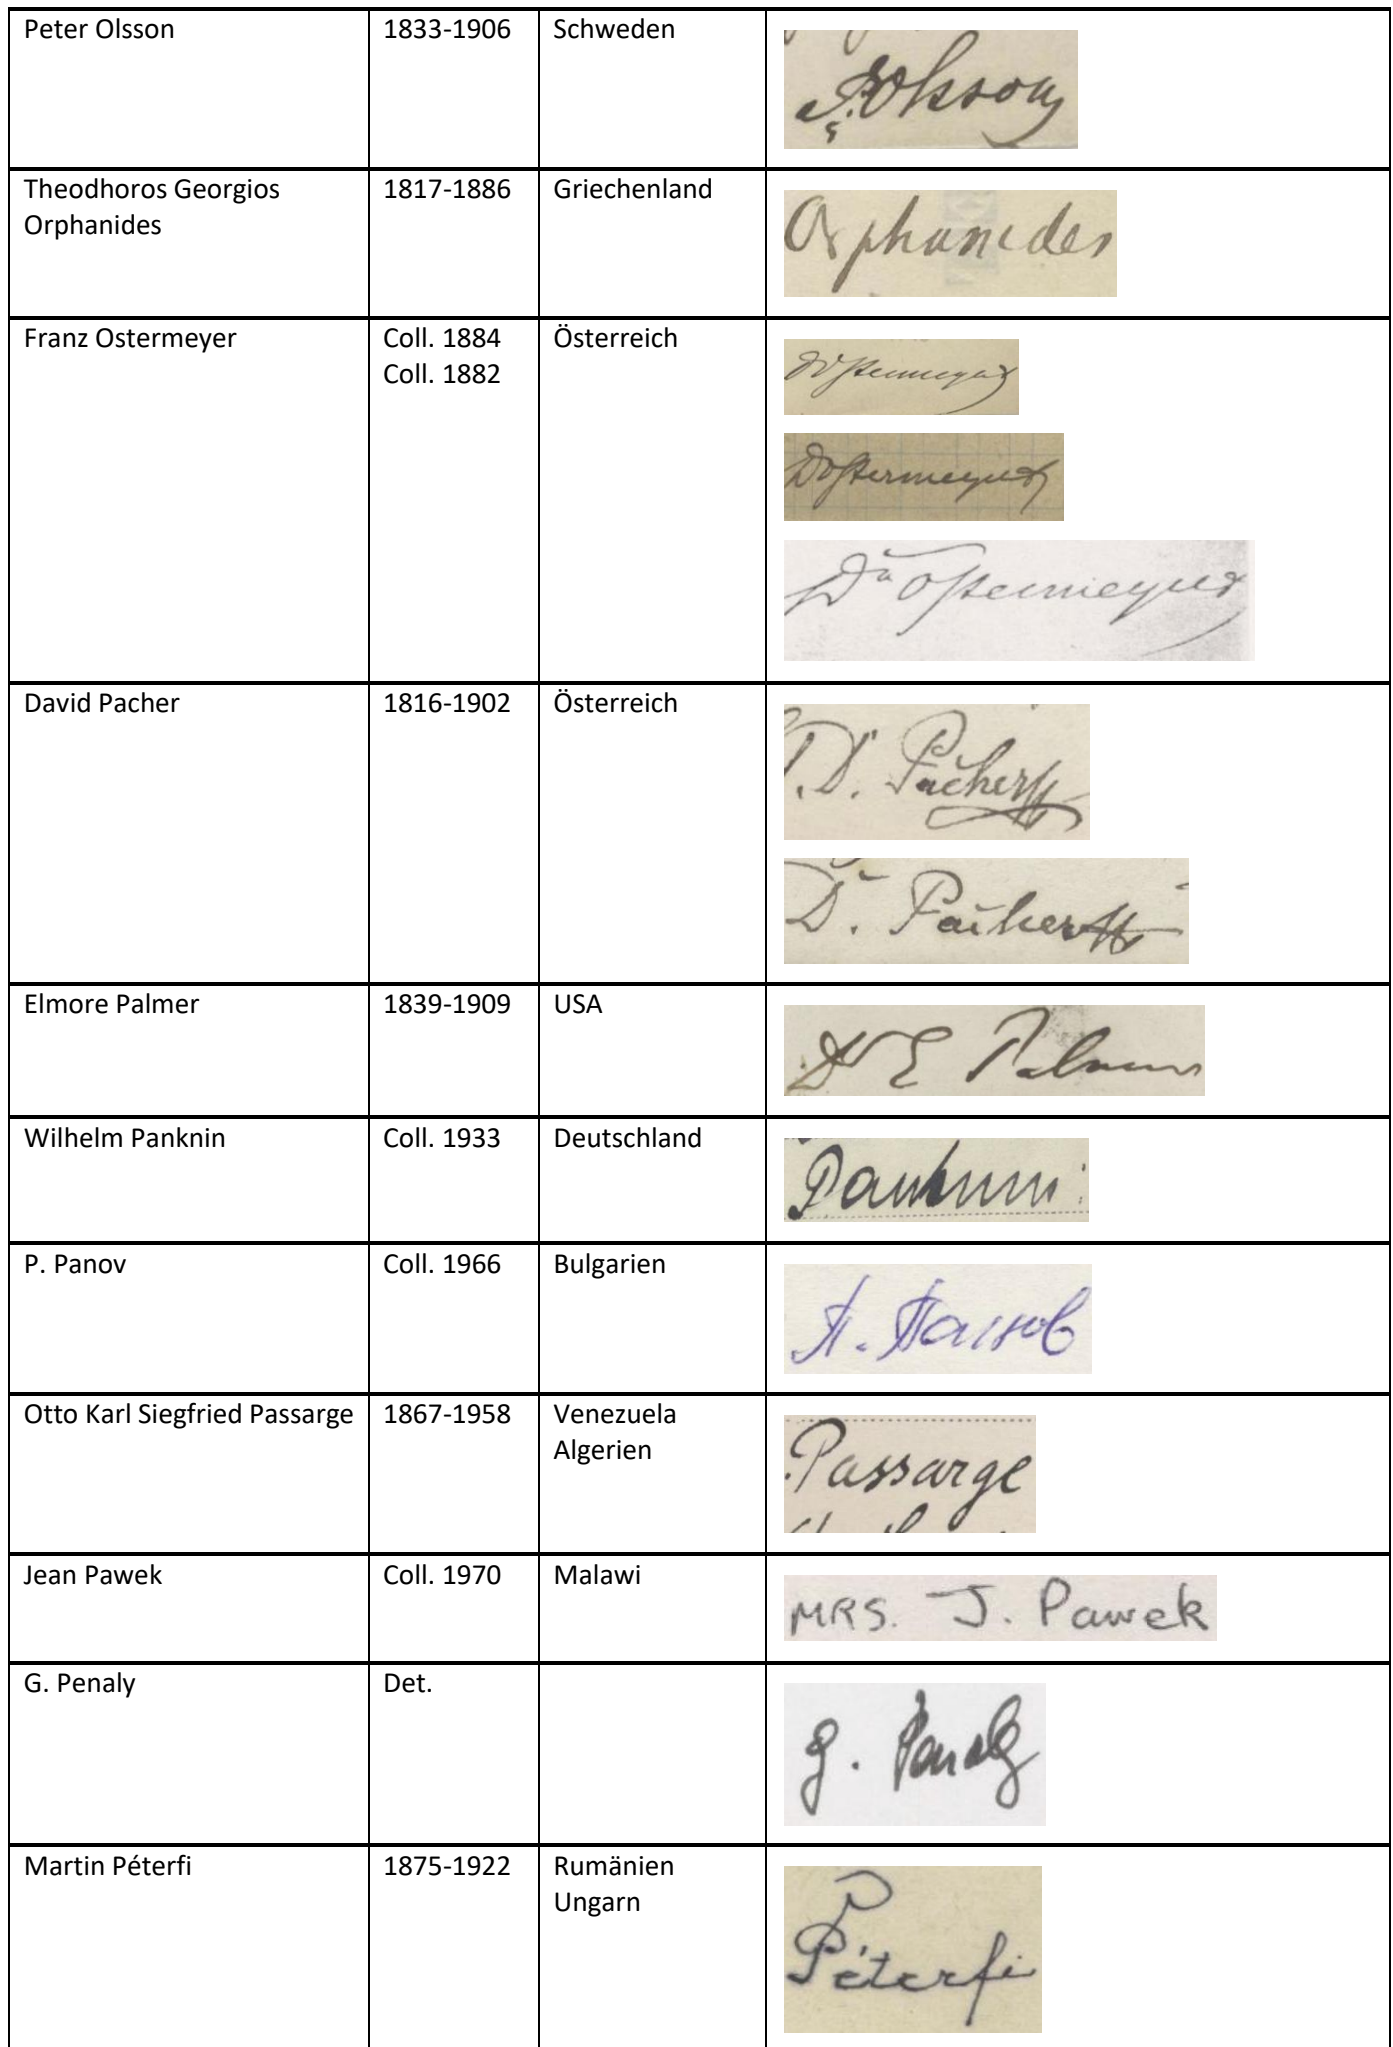 Peter Olsson 1833-1906 Schweden
P. Olsson
Theodhoros Georgios 1817-1886 Griechenland
Orphanides
Orphanides
Franz Ostermeyer Coll. 1884 Österreich
Coll. 1882
Dr Ostermeyer
Dr Ostermeyer
Dr Ostermeyer
David Pacher 1816-1902 Österreich
D. Pacher
D. Pacher
Elmore Palmer 1839-1909 USA
Dr E Palmer
Wilhelm Panknin Coll. 1933 Deutschland
Panknin
P. Panov Coll. 1966 Bulgarien
П. Панов
Otto Karl Siegfried Passarge 1867-1958 Venezuela
Algerien
Passarge
Jean Pawek Coll. 1970 Malawi
MRS. J. Pawek
G. Penaly Det.
G. Penaly
Martin Péterfi 1875-1922 Rumänien
Ungarn
Péterfi